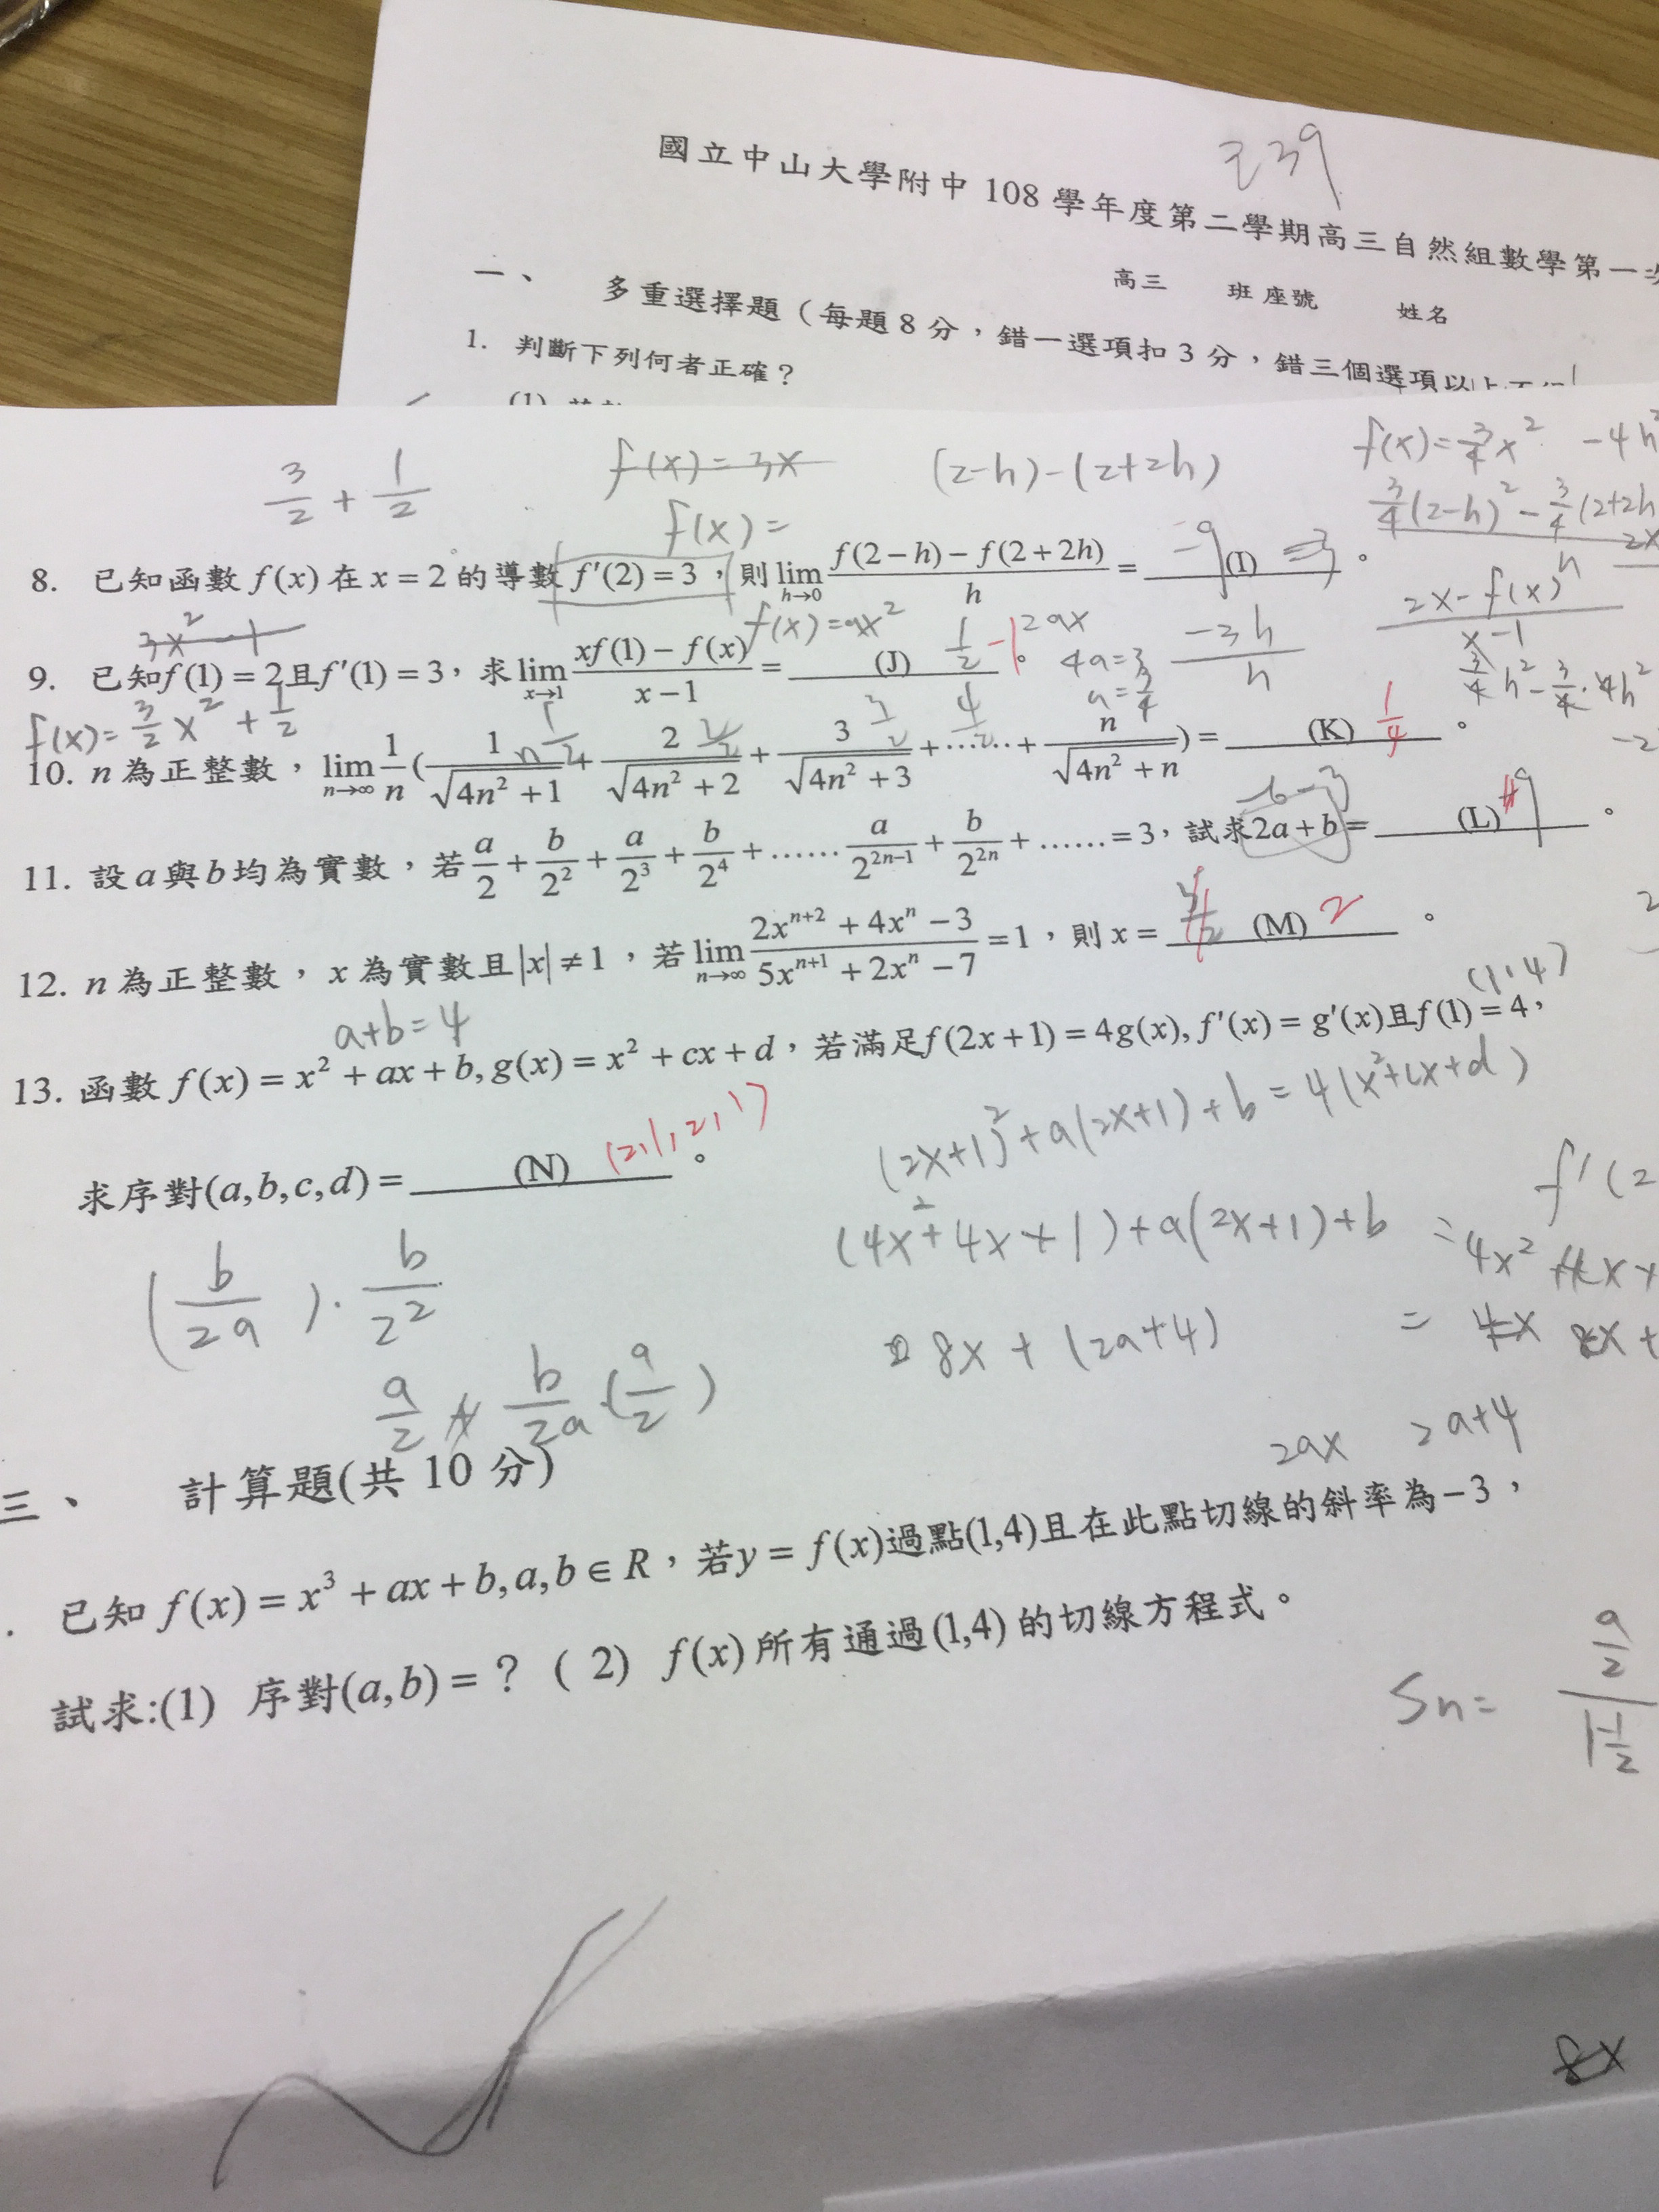 239
國立中山大學附中 108 學年度第二學期高三自然組數學第一次
高三 班 座號 姓名
一、 多重選擇題（每題 8 分，錯一選項扣 3 分，錯三個選項以上
1. 判斷下列何者正確？
(1)
3/2 + 1/2
f(x) = 3x
(2-h)-(2+2h)
f(x)=3/4 x² -4h²
f(x) =
3/4(2-h)² - 3/4(2+2h
h
8. 已知函數 f(x) 在 x = 2 的導數 f'(2) = 3，則 lim_{h→0} (f(2-h) - f(2+2h))/h = -9 (I) 。
3x²-1
f(x)=ax²
2ax
-3h/h
(2x-f(x))/(x-1)
9. 已知 f(1) = 2 且 f'(1) = 3，求 lim_{x→1} (xf(1) - f(x))/(x-1) = (J) 1/2 -1 。
4a=3
a=3/4
3/4 h² - 3/4·4h²
f(x)= 3/2 x² + 1/2
10. n 為正整數， lim_{n→∞} 1/n (1/√(4n²+1) + 2/√(4n²+2) + 3/√(4n²+3) + ⋯⋯ + n/√(4n²+n)) = (K) 1/4 。
11. 設 a 與 b 均為實數，若 a/2 + b/2² + a/2³ + b/2⁴ + ...... a/2^{2n-1} + b/2^{2n} + ...... = 3，試求 2a + b = (L) 9 。
12. n 為正整數， x 為實數且 |x| ≠ 1 ，若 lim_{n→∞} (2x^{n+2} + 4x^n - 3)/(5x^{n+1} + 2x^n - 7) = 1 ，則 x = (M) 2 。
a+b=4
(1,4)
13. 函數 f(x) = x² + ax + b, g(x) = x² + cx + d，若滿足 f(2x+1) = 4g(x), f'(x) = g'(x) 且 f(1) = 4，
(2x+1)²+a(2x+1)+b=4(x²+cx+d)
求序對 (a,b,c,d) = (N) (2,1,2,1) 。
f'(2
(4x²+4x+1)+a(2x+1)+b
(b/2a)·b/2²
8x + (2a+4)
a/2 b/2a·(a/2)
2ax 2a+4
三、 計算題(共 10 分)
. 已知 f(x) = x³ + ax + b, a,b ∈ R，若 y = f(x) 過點(1,4)且在此點切線的斜率為 -3，
試求:(1) 序對(a,b) = ? ( 2) f(x) 所有通過(1,4) 的切線方程式。
Sn= (a/2)/(1-1/2)